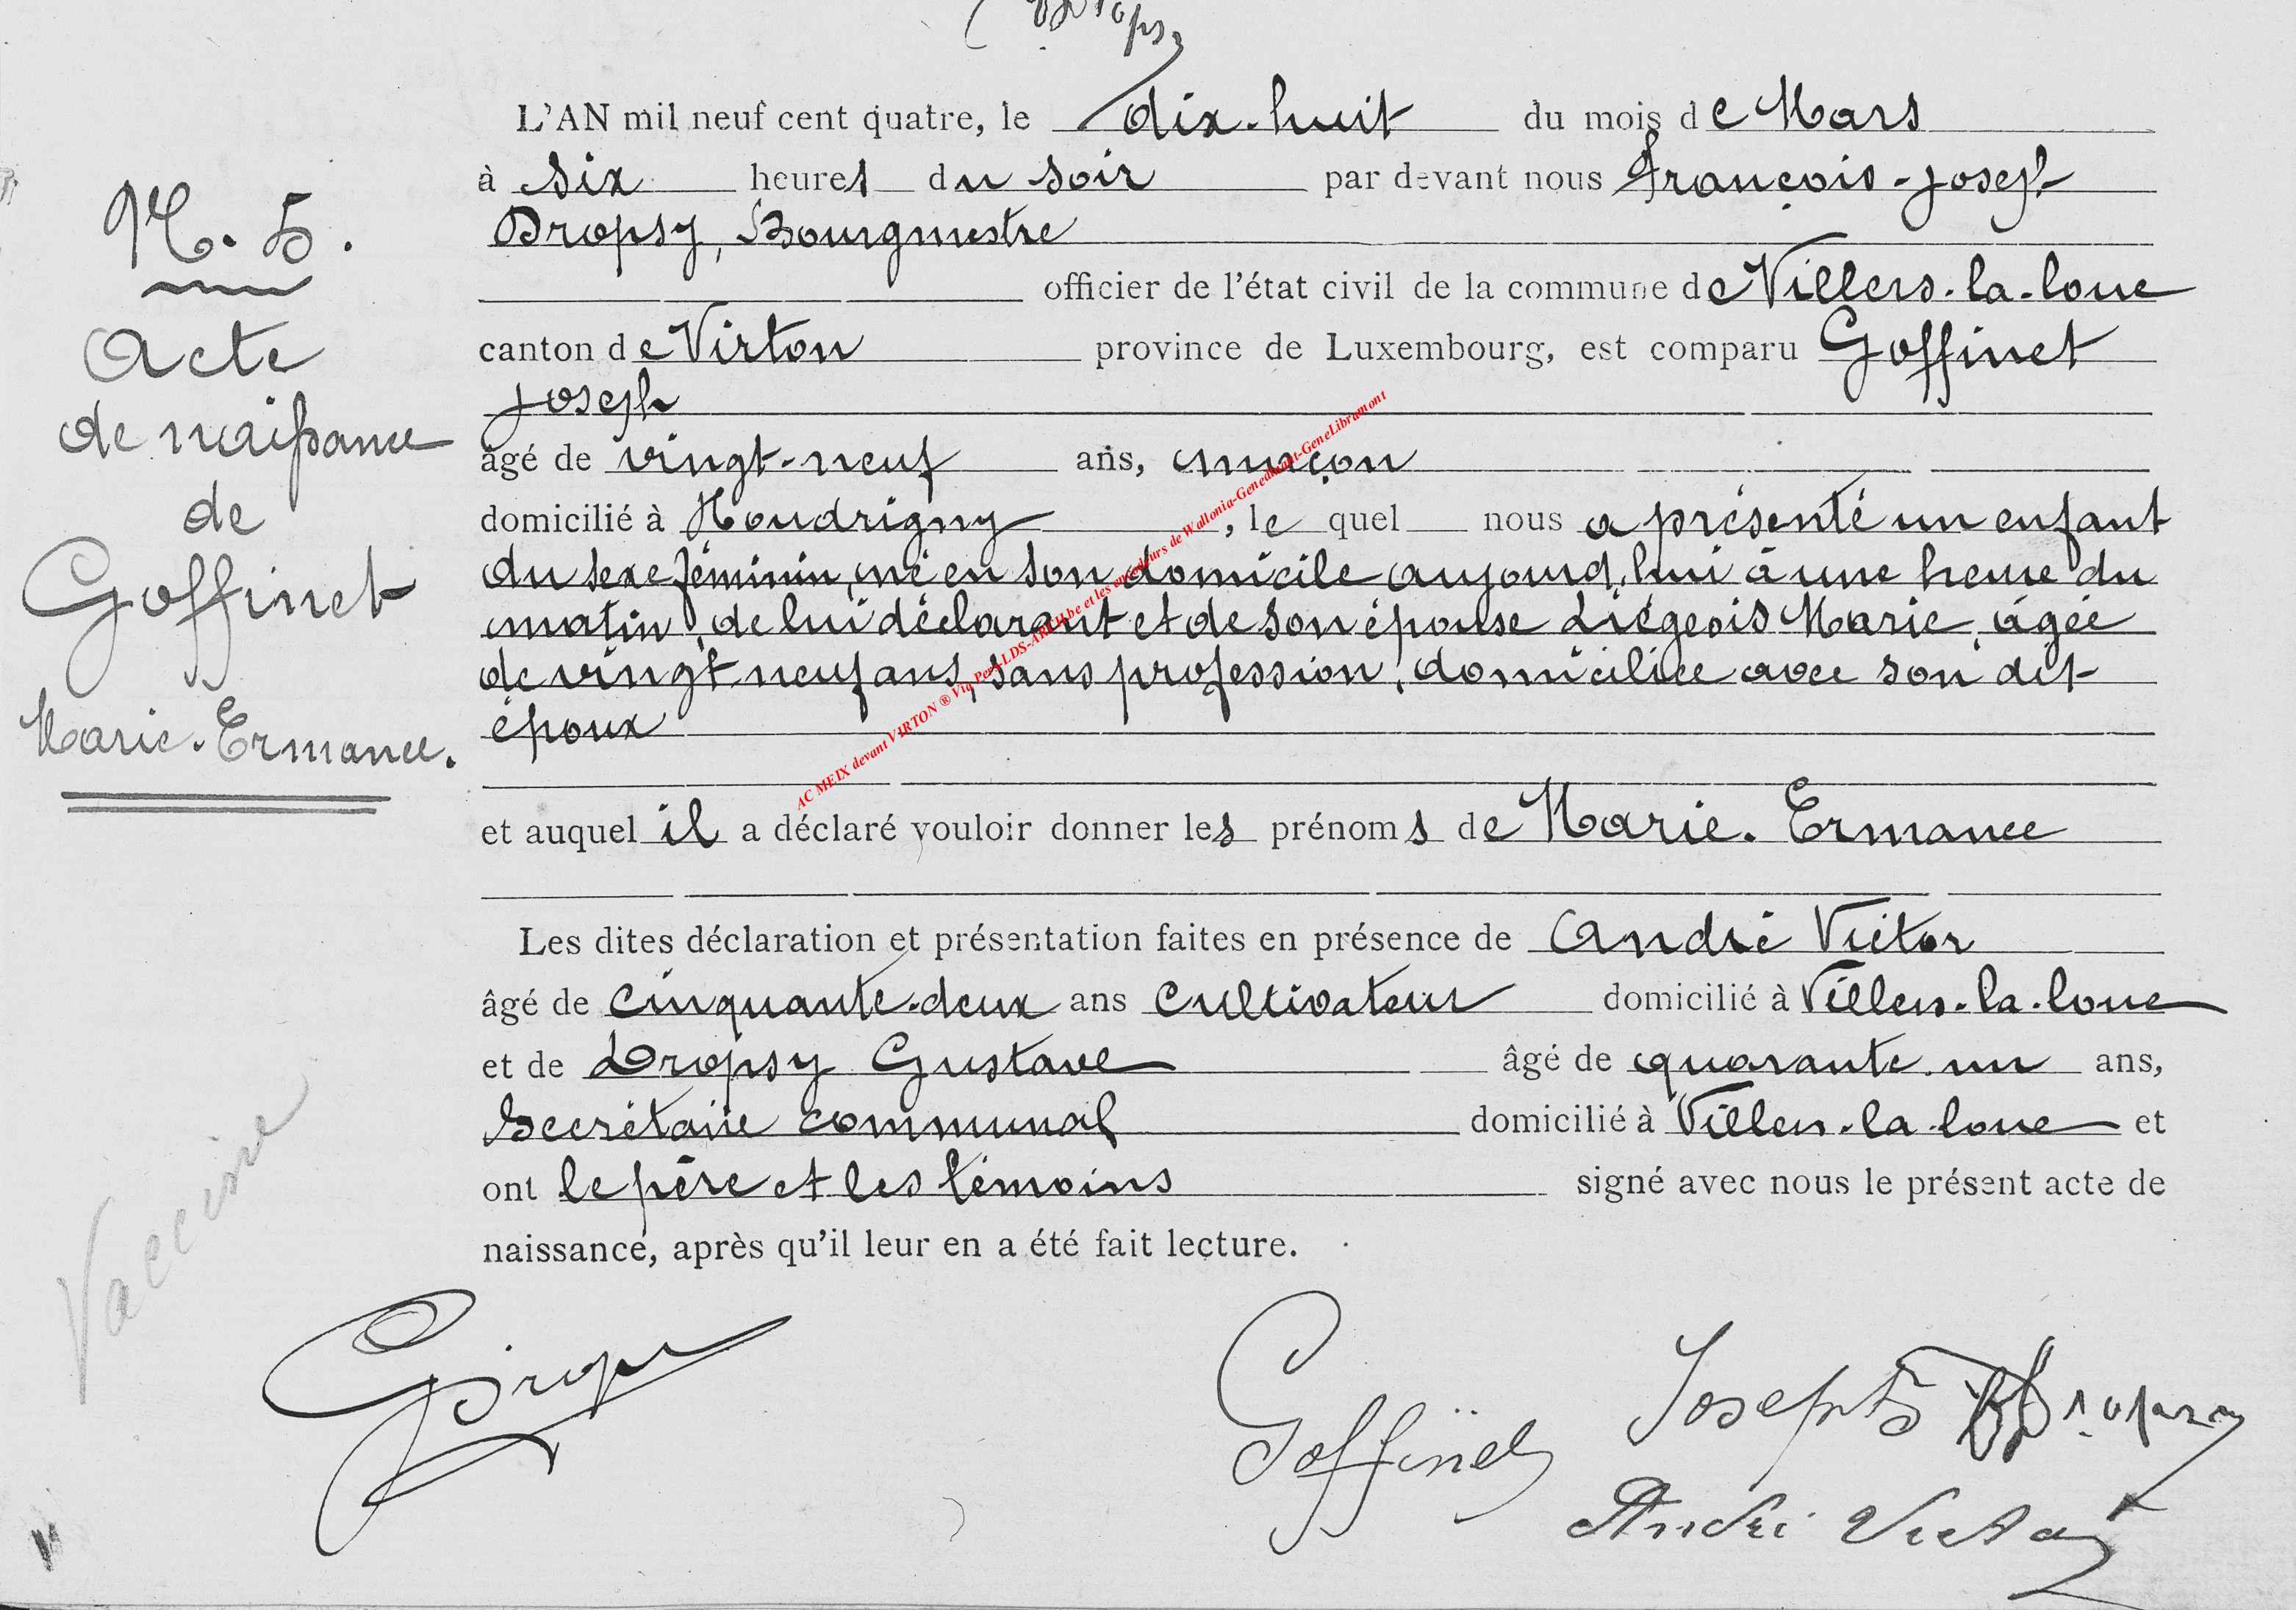 N. 5.
Acte
de naissance
de
Goffinet
Marie-Ermance.
Vaccine
L'AN mil neuf cent quatre, le dix-huit du mois de Mars
à six heures du soir par devant nous François-Joseph
Dropsy, Bourgmestre
officier de l'état civil de la commune de Villers-la-loue
canton de Virton province de Luxembourg, est comparu Goffinet
Joseph
âgé de vingt-neuf ans, maçon
domicilié à Houdrigny, le quel nous a présenté un enfant
du sexe féminin, né en son domicile aujourd'hui à une heure du
matin, de lui déclarant et de son épouse Liégeois Marie, âgée
de vingt neuf ans, sans profession, domiciliée avec son dit
époux
et auquel il a déclaré vouloir donner les prénoms de Marie-Ermance
Les dites déclaration et présentation faites en présence de André Victor
âgé de cinquante-deux ans cultivateur domicilié à Villers-la-loue
et de Dropsy Gustave âgé de quarante-un ans,
Secrétaire communal domicilié à Villers-la-loue et
ont le père et les témoins signé avec nous le présent acte de
naissance, après qu'il leur en a été fait lecture.
GDropsy
Goffinet Joseph FJDropsy
André Victor
AC MEIX devant VIRTON ® Via Pere-LDS-ARCH.be et les encodeurs de Wallonia-Genedinant-GeneLibramont